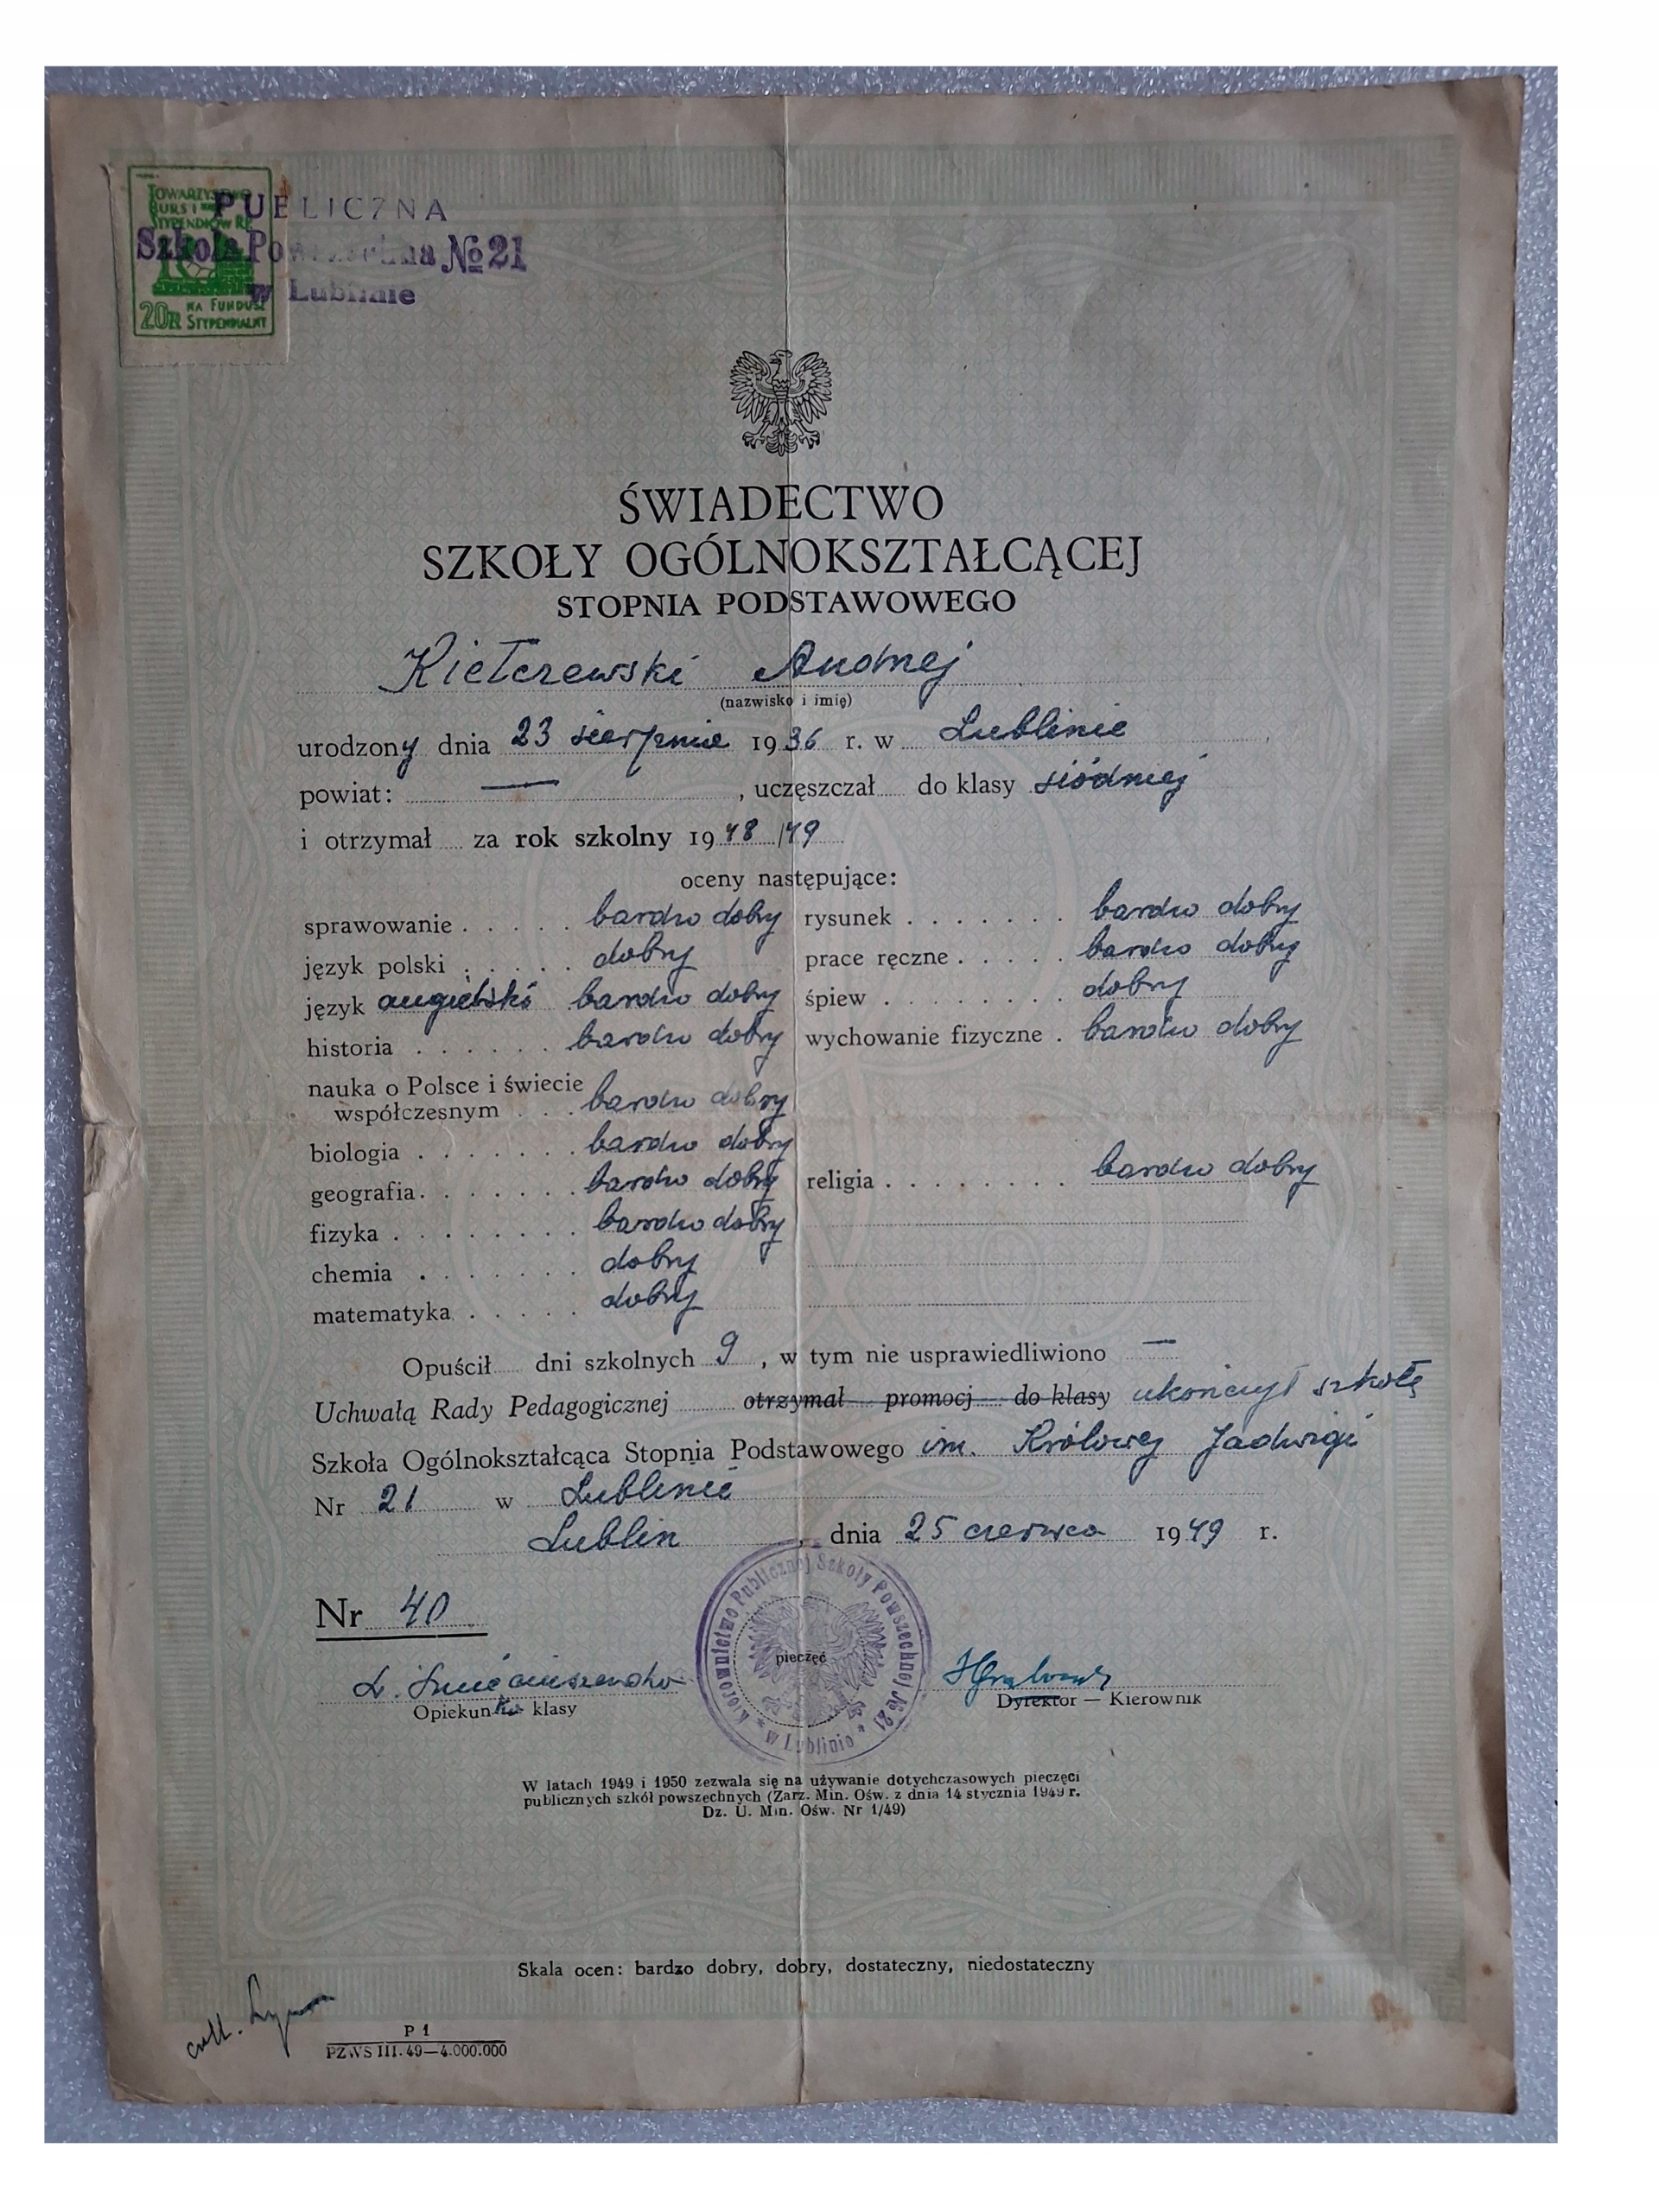 TOWARZYSTWO
BURS I
STYPENDIÓW RP
20ZŁ NA FUNDUSZ
STYPENDIALNY
PUBLICZNA
Szkoła Powszechna № 21
w Lublinie
ŚWIADECTWO
SZKOŁY OGÓLNOKSZTAŁCĄCEJ
STOPNIA PODSTAWOWEGO
Kiełczewski Andrzej
(nazwisko i imię)
urodzony dnia 23 sierpnia 1936 r. w Lublinie
powiat: — , uczęszczał do klasy siódmej
i otrzymał za rok szkolny 1948/49
oceny następujące:
sprawowanie bardzo dobry
język polski dobry
język angielski bardzo dobry
historia bardzo dobry
nauka o Polsce i świecie
współczesnym bardzo dobry
biologia bardzo dobry
geografia bardzo dobry
fizyka bardzo dobry
chemia dobry
matematyka dobry
rysunek bardzo dobry
prace ręczne bardzo dobry
śpiew dobry
wychowanie fizyczne bardzo dobry
religia bardzo dobry
Opuścił dni szkolnych 9, w tym nie usprawiedliwiono —
Uchwałą Rady Pedagogicznej otrzymał promocj do klasy ukończył szkołę
Szkoła Ogólnokształcąca Stopnia Podstawowego im. Królowej Jadwigi
Nr 21 w Lublinie
Lublin, dnia 25 czerwca 1949 r.
Nr 40
Kierownictwo Publicznej Szkoły Powszechnej № 21
* w Lublinie *
pieczęć
Opiekunka klasy
Dyrektor — Kierownik
W latach 1949 i 1950 zezwala się na używanie dotychczasowych pieczęci
publicznych szkół powszechnych (Zarz. Min. Ośw. z dnia 14 stycznia 1949 r.
Dz. U. Min. Ośw. Nr 1/49)
Skala ocen: bardzo dobry, dobry, dostateczny, niedostateczny
P 1
PZWS III.49—4.000.000